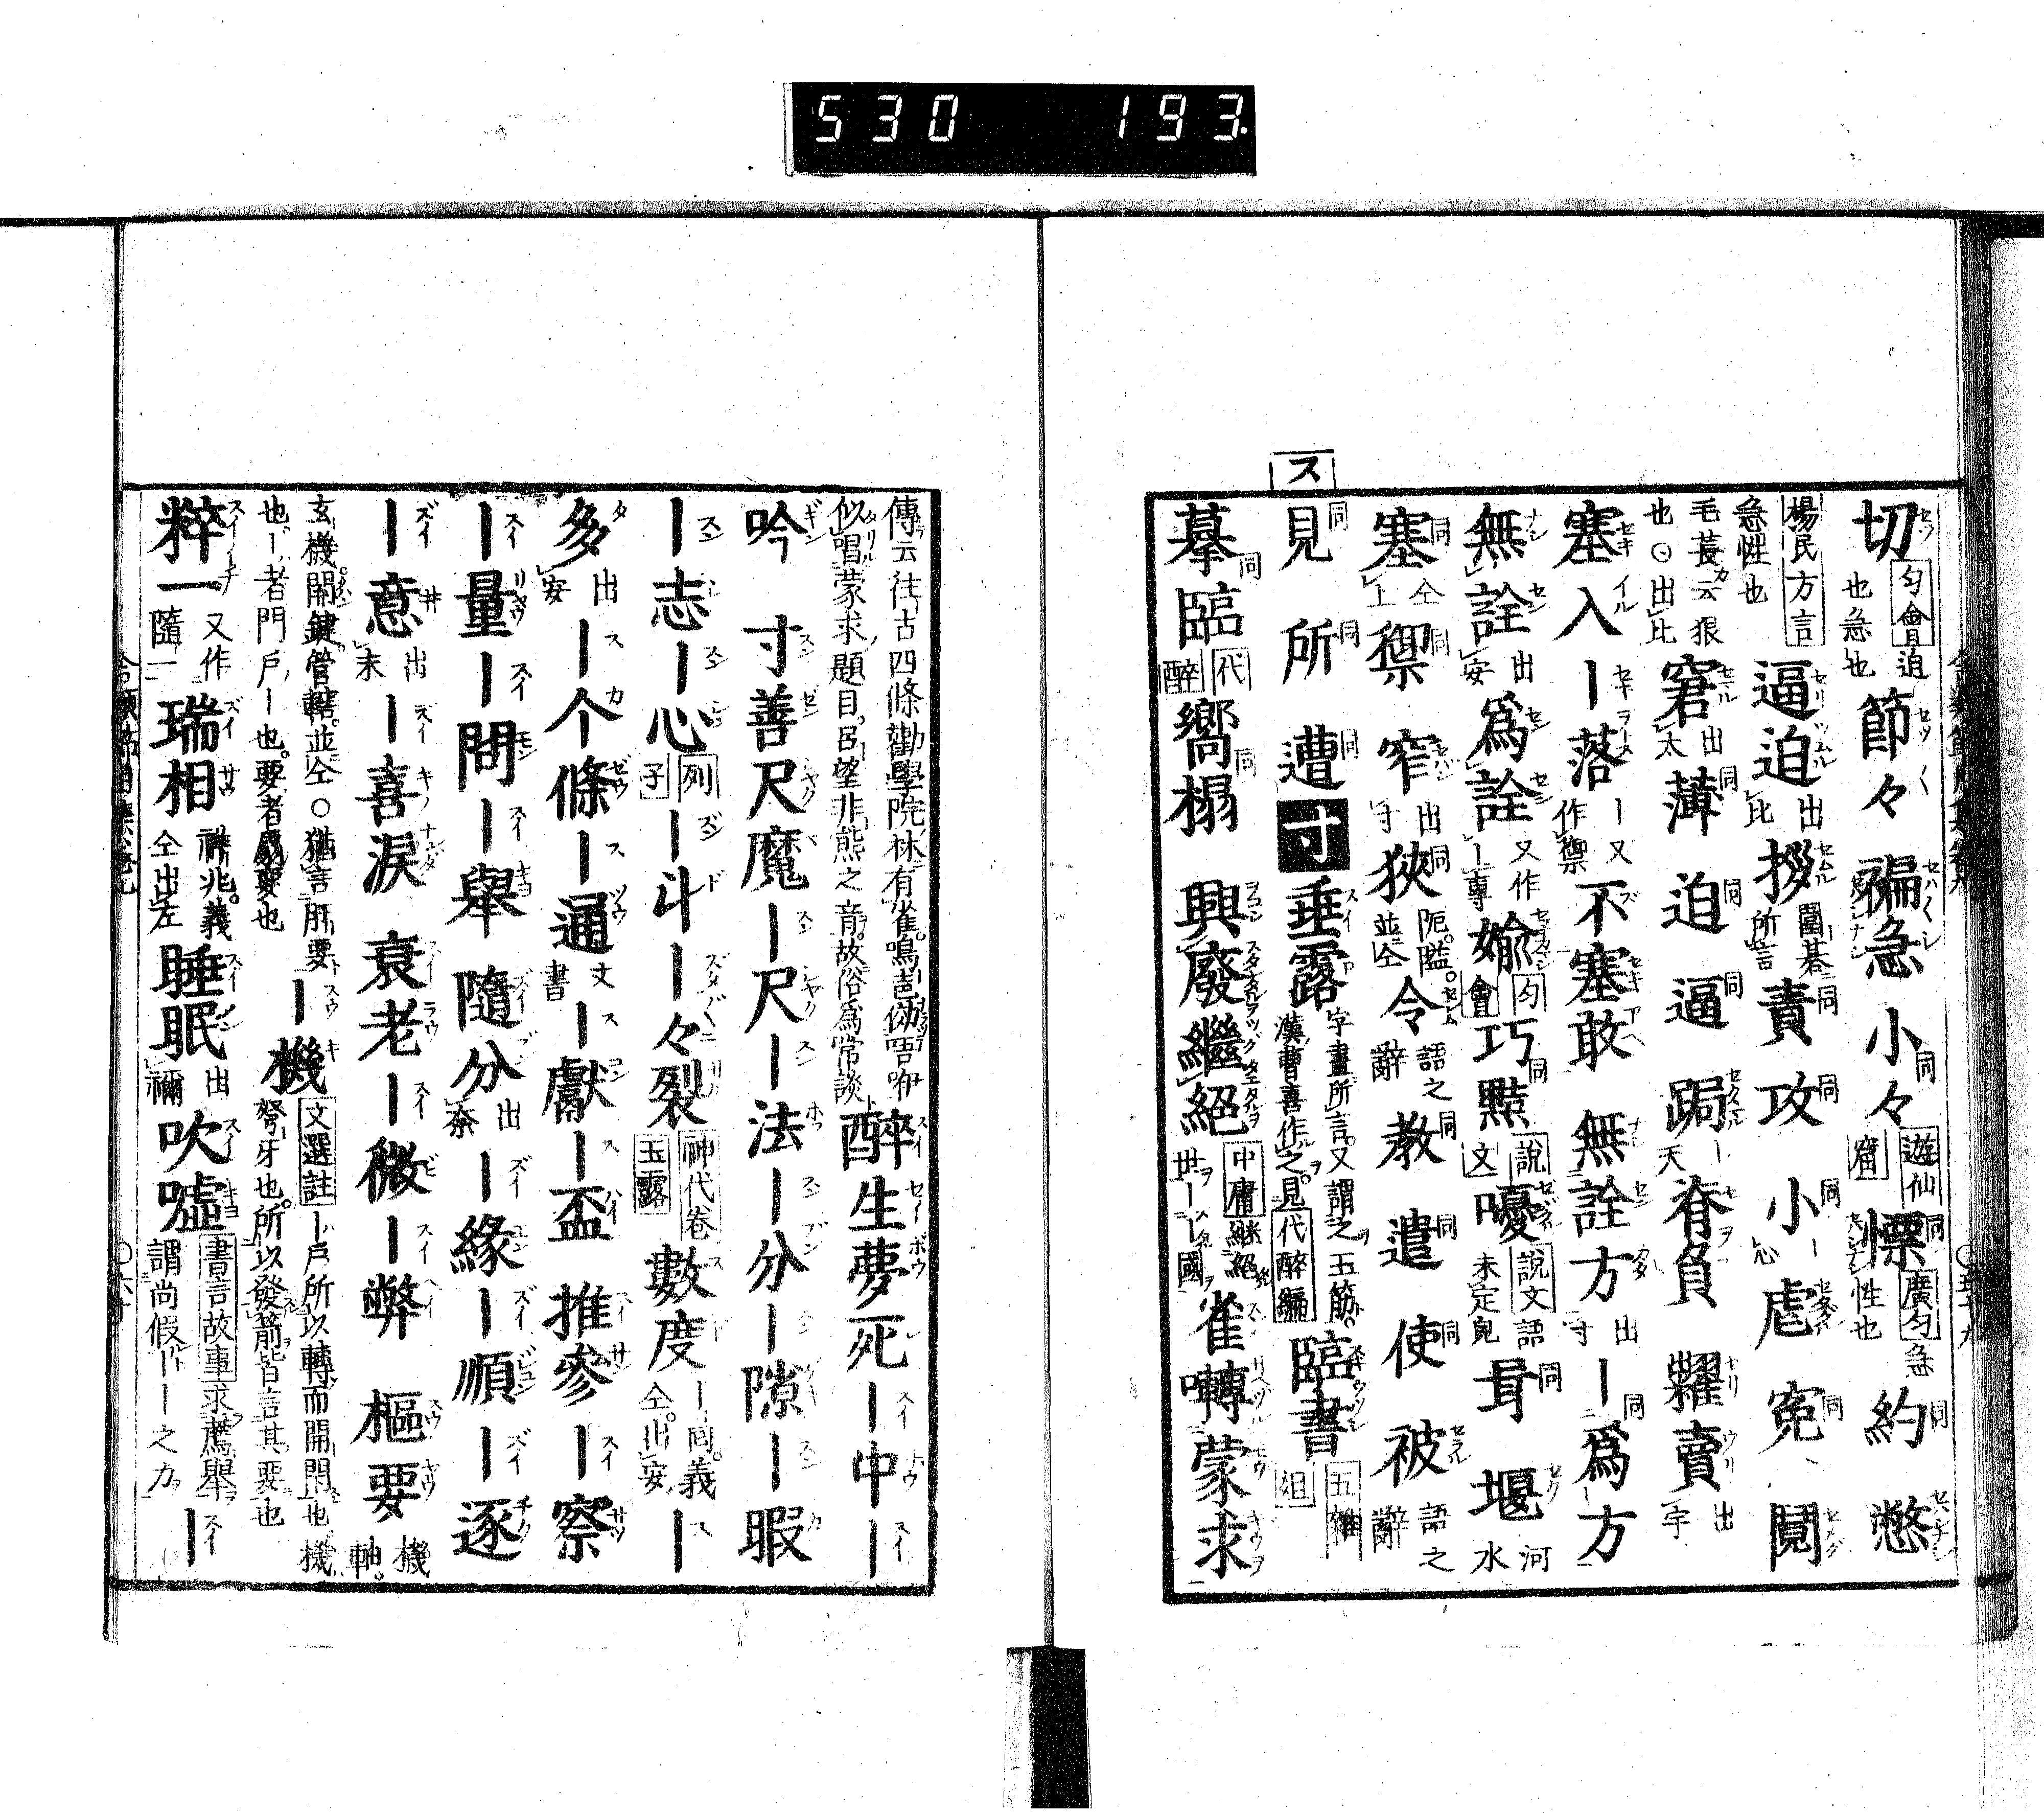 530 193.
ス
切 匀會 迫也急也 節々 褊急 小々 遊仙窟 慓 廣匀 急性也 約 憋
楊氏方言 急性也 逼迫 出比 拶 圍碁所言 責 攻 小 心 虐 寃 鬩
毛萇云狠也○出比 窘 出太 薄 迫 逼 跼 天 脊負 糶賣 出宇
塞入 ー落 ー又作禦 不塞敢 無詮方 出寸 ー爲方
無詮 出安 爲詮 又作ー專 婾 匀會 巧點 說文 嚘 說文 語未定皃 㝵 堰 河水
塞 仝上 禦 窄 出寸 狹 阨隘並仝 令 語之辭 教 遣 使 被 語之辭
見 所 遭 寸 垂露 字畫所言又謂之玉筋漢曹喜作之見代醉編 臨書 五雜俎
摹 臨 代醉 嚮榻 興廢繼絕 中庸 継絕世ー國 雀囀蒙求
傳云往古四條勸學院林有雀鳴吉
似唱蒙求題目呂望非熊之音故俗爲常談 醉生夢死 ー中ー
吟 寸善尺魔 ー尺 ー法 ー分 ー隙 ー暇
ー志 ー心 列子 ー斗 ー々裂 神代卷 玉露 數度 ー同義仝出安 ー
多 出安 ー个條 ー通 文書 ー獻 ー盃 推參 ー察
ー量 ー問 ー舉 隨分 出奈 ー緣 ー順 ー逐
ー意 出末 ー喜淚 衰老 ー微 ー弊 樞要 機軸
玄機開鍵管轄並仝○猶言肝要也ー者門戶ー也要者扇要也 ー機 文選註 ー戶所以轉而開閇也機弩牙也所以發箭皆言其要也
粹一 又作隨一 瑞相 祥兆義仝出左 睡眠 出禰 吹噓 書言故事 求薦舉謂尚假ーー之力 ー